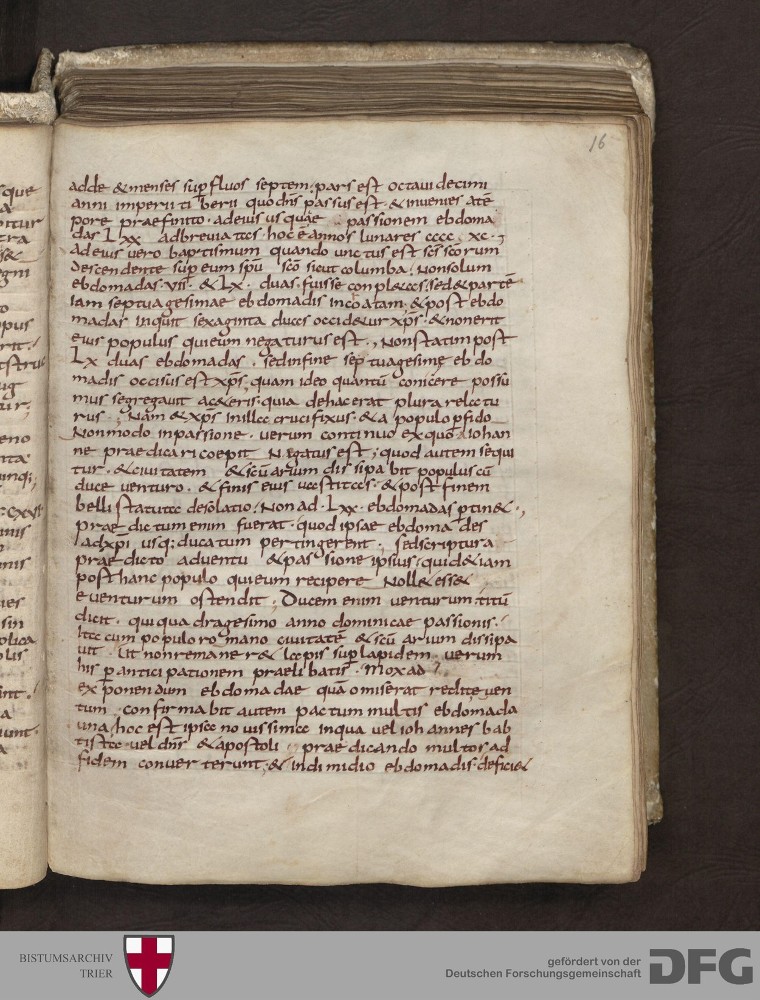 adde & menses sup fluos septem. pars est octaui decimi
anni imperii ti berii quo dñs passus est. & inuenies a tē
pore praefinito. ad eius us quae passionem ebdoma
das Lxx adbreuia tas. hoc ē annos lunares cccc. xc.,
ad eius uero baptismum quando unctus est scs scorum
descendente sup eum spū scō sicut columba. Non solum
ebdomadas. vii. & Lx. duas. fuisse conpl&as. sed & partē
iam septuagesimae ebdomadis incoatam. & post ebdo
madas inquit sexaginta duas occid&ur xps. & non erit
eius populus qui eum negaturus est., Non statim post
Lx duas ebdomadas. sed in fine septuagesimę eb do
madis occisus est xps. quam ideo quantū conicere possu
mus segregauit ac&eris. quia de hac erat plura relatu
rus. Nam & xps in illa crucifixus. & a populo pfido
Non modo in passione. uerum continuo ex quo a iohan
ne praedicari coepit Negatus est; quod autem sequi
tur. & ciuitatem & scū arium dissipabit populus cū
duce uenturo. & finis eius uastitas. & post finem
belli statuta desolatio. Non ad. Lxx. ebdomadas ptin&.,
praedictum enim fuerat. quod ipsae ebdoma des
ad xpi usq: ducatum pertingerent. sed scriptura
praedicto aduentu & passione ipsius. quid & iam
post hanc populo qui eum recipere Noll& ess&
euenturum ostendit. Ducem enim uenturum. titū
dicit. qui quadragesimo anno dominicae passionis.
ita cum populo romano ciuitatē & scū arium dissipa
uit. Ut non remaner& lapis sup lapidem uerum
his p anticipationem praelibatis. Mox ad
exponendum ebdomadae quā omiserat redit euen
tum. confirmabit autem pactum multis ebdomada
una. hoc est ipsa nouissima in qua uel iohannes bab
tista. uel dns & apostoli praedicando multos ad
fidem conuerterunt. & in dimidio ebdomadis. defici&
16
BISTUMSARCHIV
TRIER
gefördert von der
Deutschen Forschungsgemeinschaft
DFG